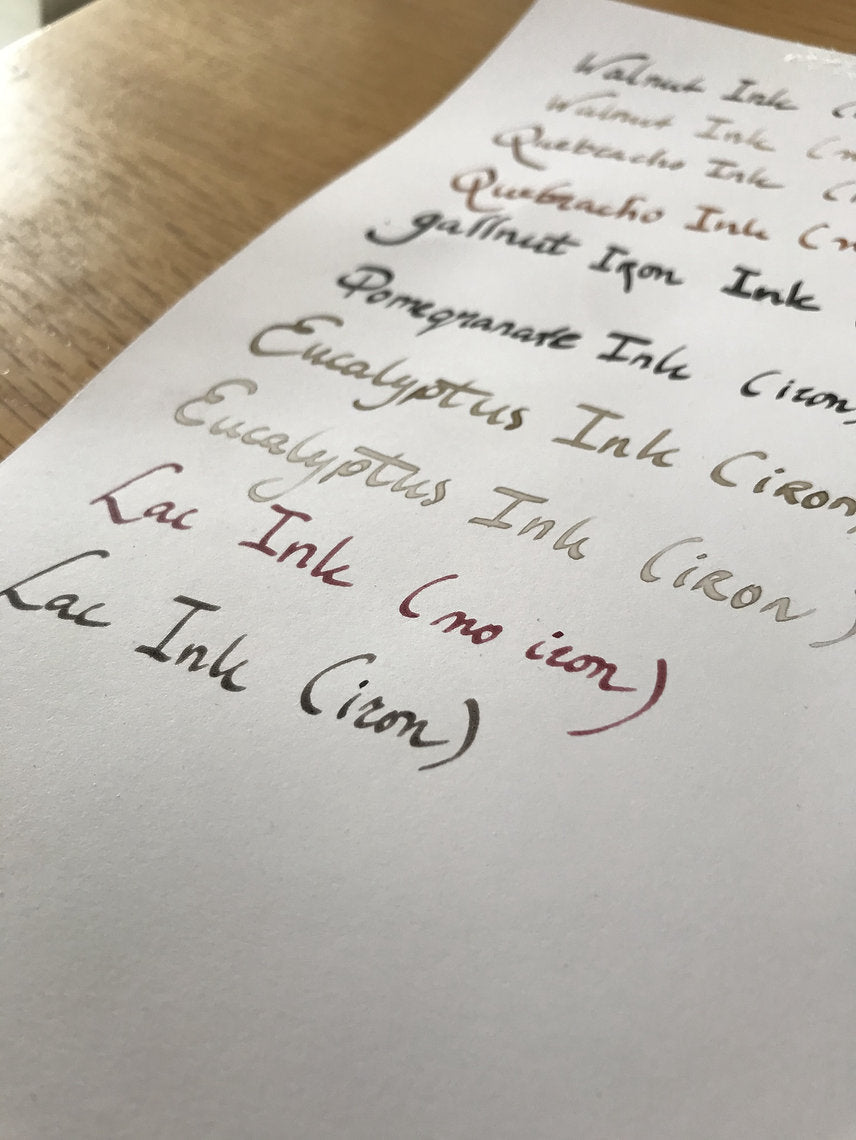 Walnut Ink (
Walnut Ink (
Quebracho Ink (
Quebracho Ink (
gallnut Iron Ink
Pomegranate Ink (iron)
Eucalyptus Ink (iRON)
Eucalyptus Ink (iRON)
Lac Ink (no iron)
Lac Ink (iron)